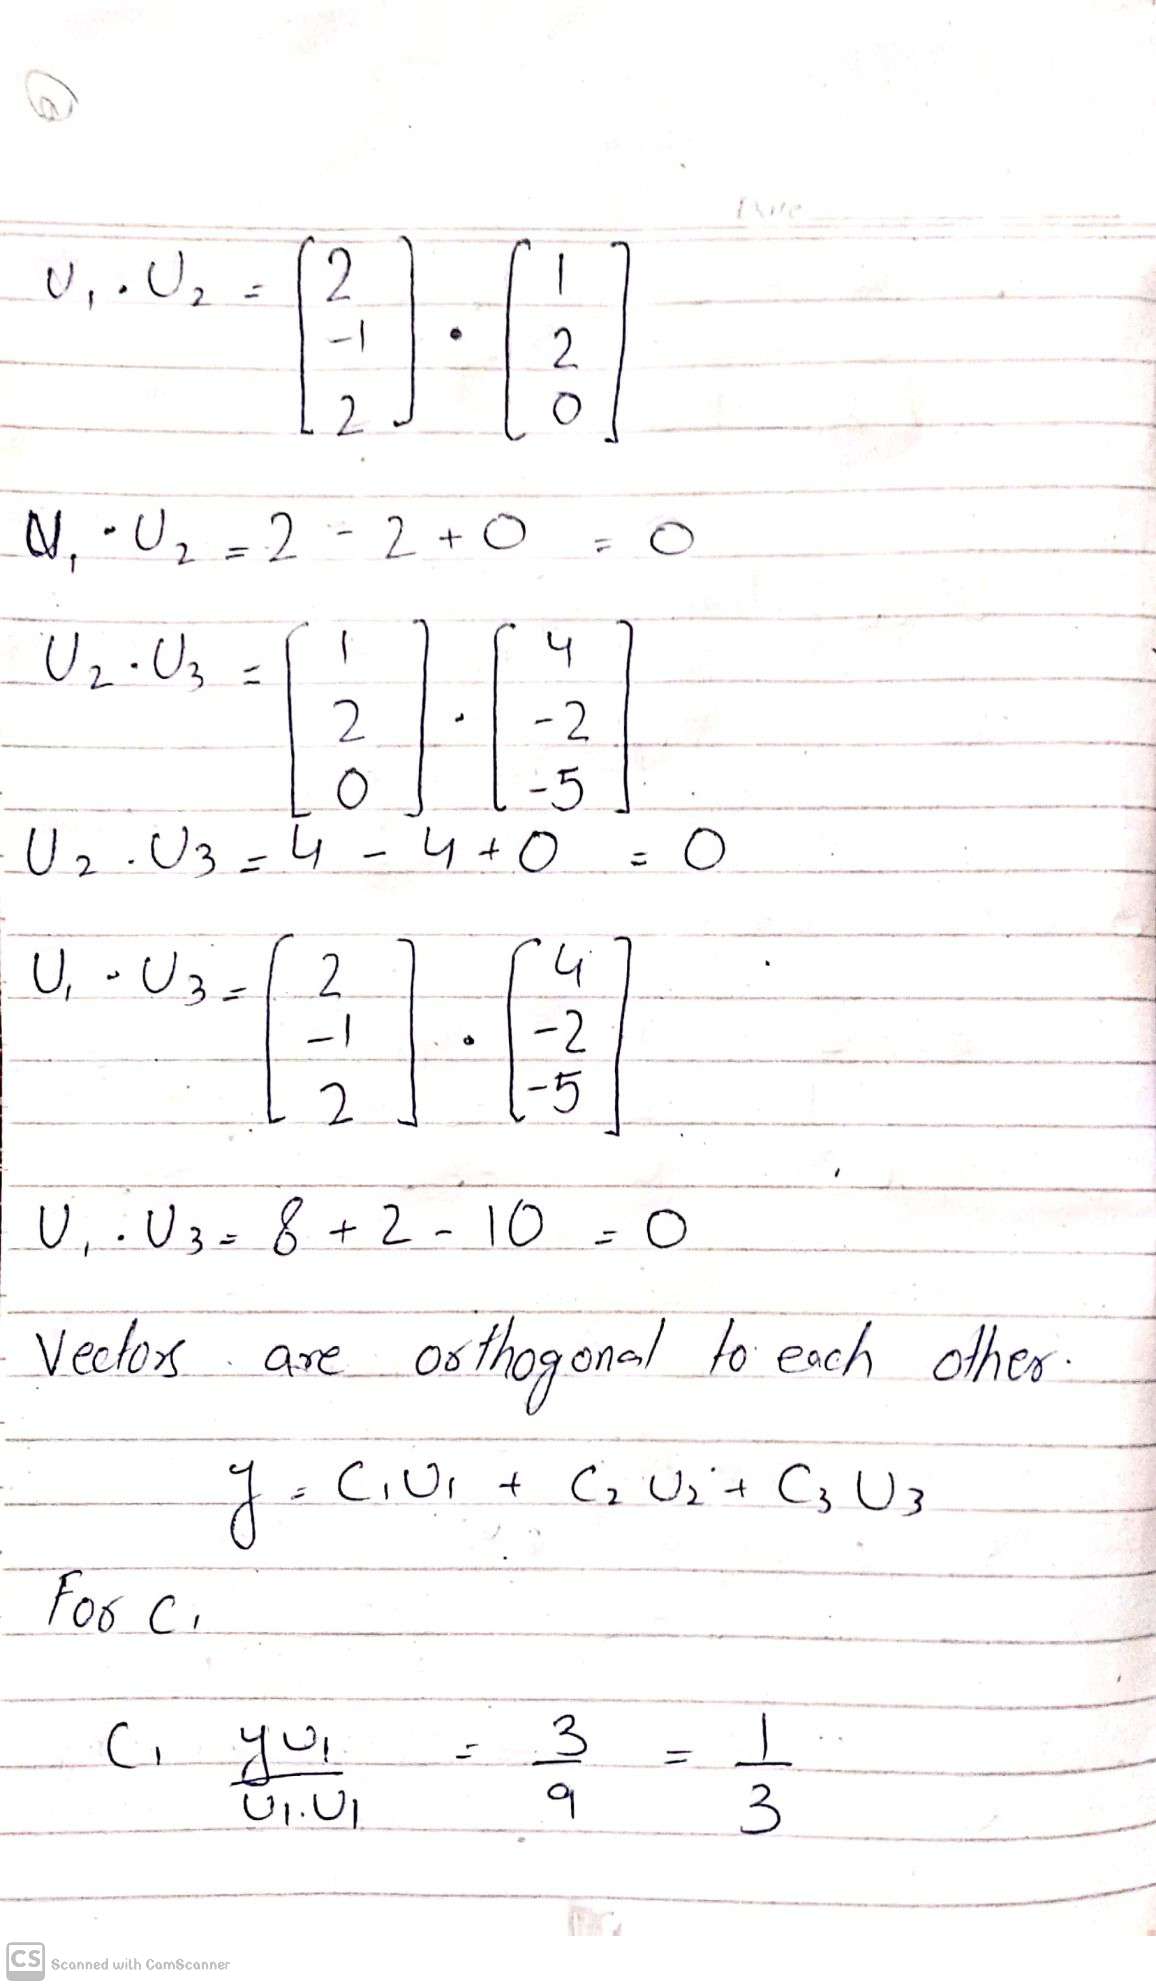 a
Date
U₁ . U₂ = [2 -1 2] . [1 2 0]
U₁ . U₂ = 2 - 2 + 0 = 0
U₂ . U₃ = [1 2 0] . [4 -2 -5]
U₂ . U₃ = 4 - 4 + 0 = 0
U₁ . U₃ = [2 -1 2] . [4 -2 -5]
U₁ . U₃ = 8 + 2 - 10 = 0
Vectors are orthogonal to each other.
y = C₁U₁ + C₂U₂ + C₃U₃
For C₁
C₁ yU₁/U₁.U₁ = 3/9 = 1/3
CS Scanned with CamScanner